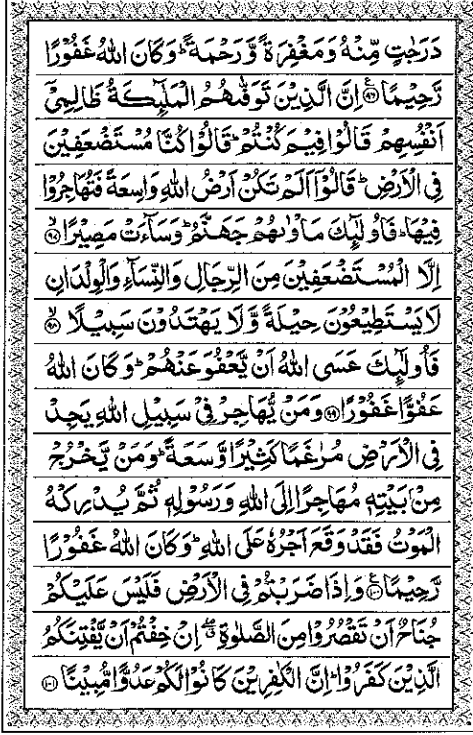 دَرَجٰتٍ مِّنْهُ وَمَغْفِرَةً وَّرَحْمَةً ؕ وَكَانَ اللّٰهُ غَفُوْرًا
رَّحِيْمًا ﴿۹۶﴾ اِنَّ الَّذِيْنَ تَوَفّٰىهُمُ الْمَلٰٓئِكَةُ ظَالِمِيْٓ
اَنْفُسِهِمْ قَالُوْا فِيْمَ كُنْتُمْ ؕ قَالُوْا كُنَّا مُسْتَضْعَفِيْنَ
فِي الْاَرْضِ ؕ قَالُوْٓا اَلَمْ تَكُنْ اَرْضُ اللّٰهِ وَاسِعَةً فَتُهَاجِرُوْا
فِيْهَا ؕ فَاُولٰٓئِكَ مَاْوٰىهُمْ جَهَنَّمُ ؕ وَسَآءَتْ مَصِيْرًا ﴿۹۷﴾
اِلَّا الْمُسْتَضْعَفِيْنَ مِنَ الرِّجَالِ وَالنِّسَآءِ وَالْوِلْدَانِ
لَا يَسْتَطِيْعُوْنَ حِيْلَةً وَّلَا يَهْتَدُوْنَ سَبِيْلًا ﴿۹۸﴾
فَاُولٰٓئِكَ عَسَى اللّٰهُ اَنْ يَّعْفُوَ عَنْهُمْ ؕ وَكَانَ اللّٰهُ
عَفُوًّا غَفُوْرًا ﴿۹۹﴾ وَمَنْ يُّهَاجِرْ فِيْ سَبِيْلِ اللّٰهِ يَجِدْ
فِي الْاَرْضِ مُرٰغَمًا كَثِيْرًا وَّسَعَةً ؕ وَمَنْ يَّخْرُجْ
مِنْۢ بَيْتِهٖ مُهَاجِرًا اِلَى اللّٰهِ وَرَسُوْلِهٖ ثُمَّ يُدْرِكْهُ
الْمَوْتُ فَقَدْ وَقَعَ اَجْرُهٗ عَلَى اللّٰهِ ؕ وَكَانَ اللّٰهُ غَفُوْرًا
رَّحِيْمًا ﴿۱۰۰﴾ وَاِذَا ضَرَبْتُمْ فِي الْاَرْضِ فَلَيْسَ عَلَيْكُمْ
جُنَاحٌ اَنْ تَقْصُرُوْا مِنَ الصَّلٰوةِ ۖ اِنْ خِفْتُمْ اَنْ يَّفْتِنَكُمُ
الَّذِيْنَ كَفَرُوْا ؕ اِنَّ الْكٰفِرِيْنَ كَانُوْا لَكُمْ عَدُوًّا مُّبِيْنًا ﴿۱۰۱﴾